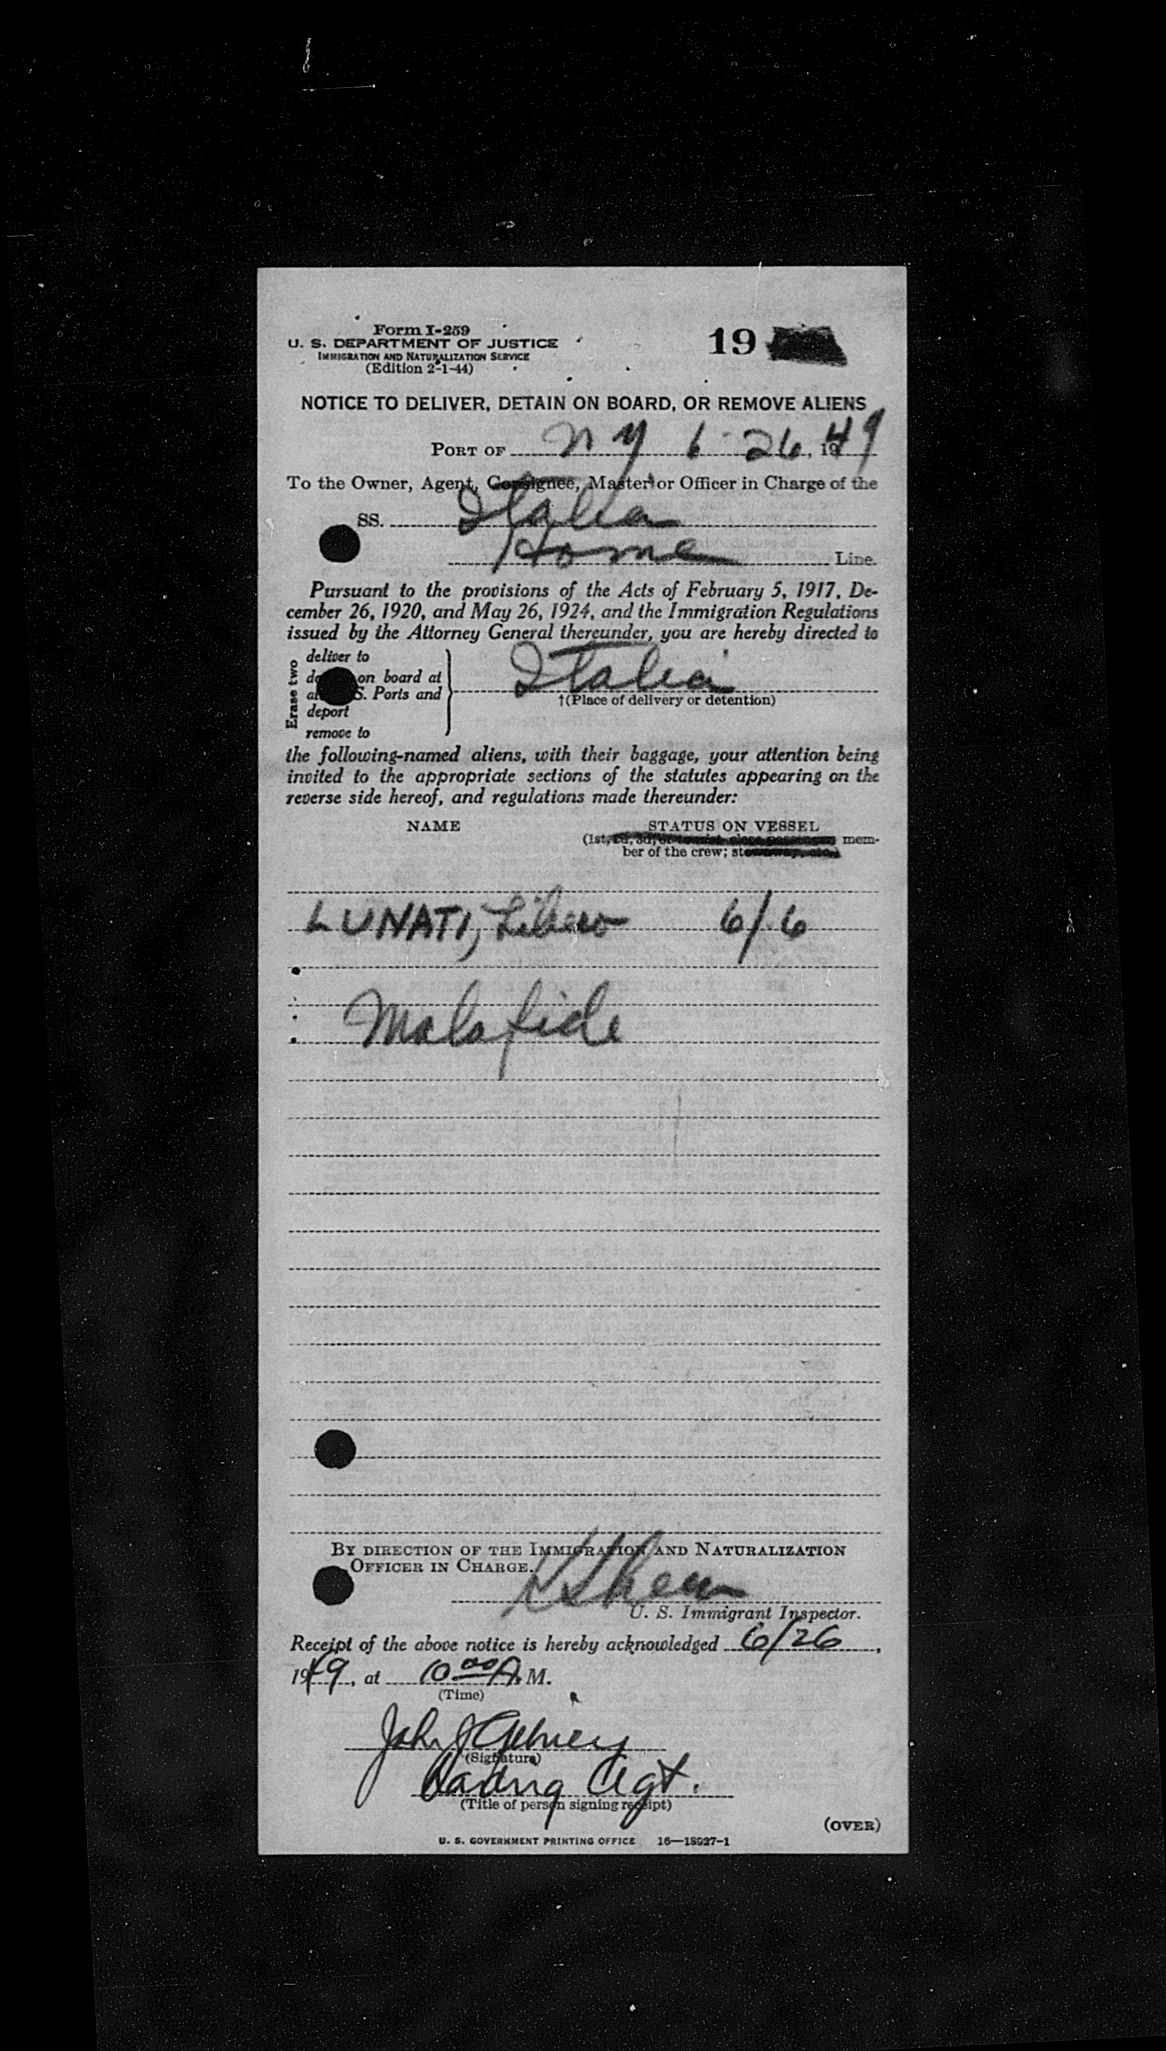 Form I-259
U. S. DEPARTMENT OF JUSTICE
IMMIGRATION AND NATURALIZATION SERVICE
(Edition 2-1-44)
19
NOTICE TO DELIVER, DETAIN ON BOARD, OR REMOVE ALIENS
PORT OF NY 6-26, 1949
To the Owner, Agent, Consignee, Master, or Officer in Charge of the
SS. Italia
Home Line.
Pursuant to the provisions of the Acts of February 5, 1917, De-
cember 26, 1920, and May 26, 1924, and the Immigration Regulations
issued by the Attorney General thereunder, you are hereby directed to
Erase two
deliver to
on board at
S. Ports and
deport
remove to
Italia
†(Place of delivery or detention)
the following-named aliens, with their baggage, your attention being
invited to the appropriate sections of the statutes appearing on the
reverse side hereof, and regulations made thereunder:
NAME STATUS ON VESSEL
(1st, 2d, 3d, or tourist class passenger; mem-
ber of the crew; stowaway, etc.)
LUNATI, Libero 6/6
Malafide
BY DIRECTION OF THE IMMIGRATION AND NATURALIZATION
OFFICER IN CHARGE.
U. S. Immigrant Inspector.
Receipt of the above notice is hereby acknowledged 6/26,
1949, at 10 00 A. M.
(Time)
John J
(Signature)
Agt.
(Title of person signing receipt)
(OVER)
U. S. GOVERNMENT PRINTING OFFICE 16—18027-1